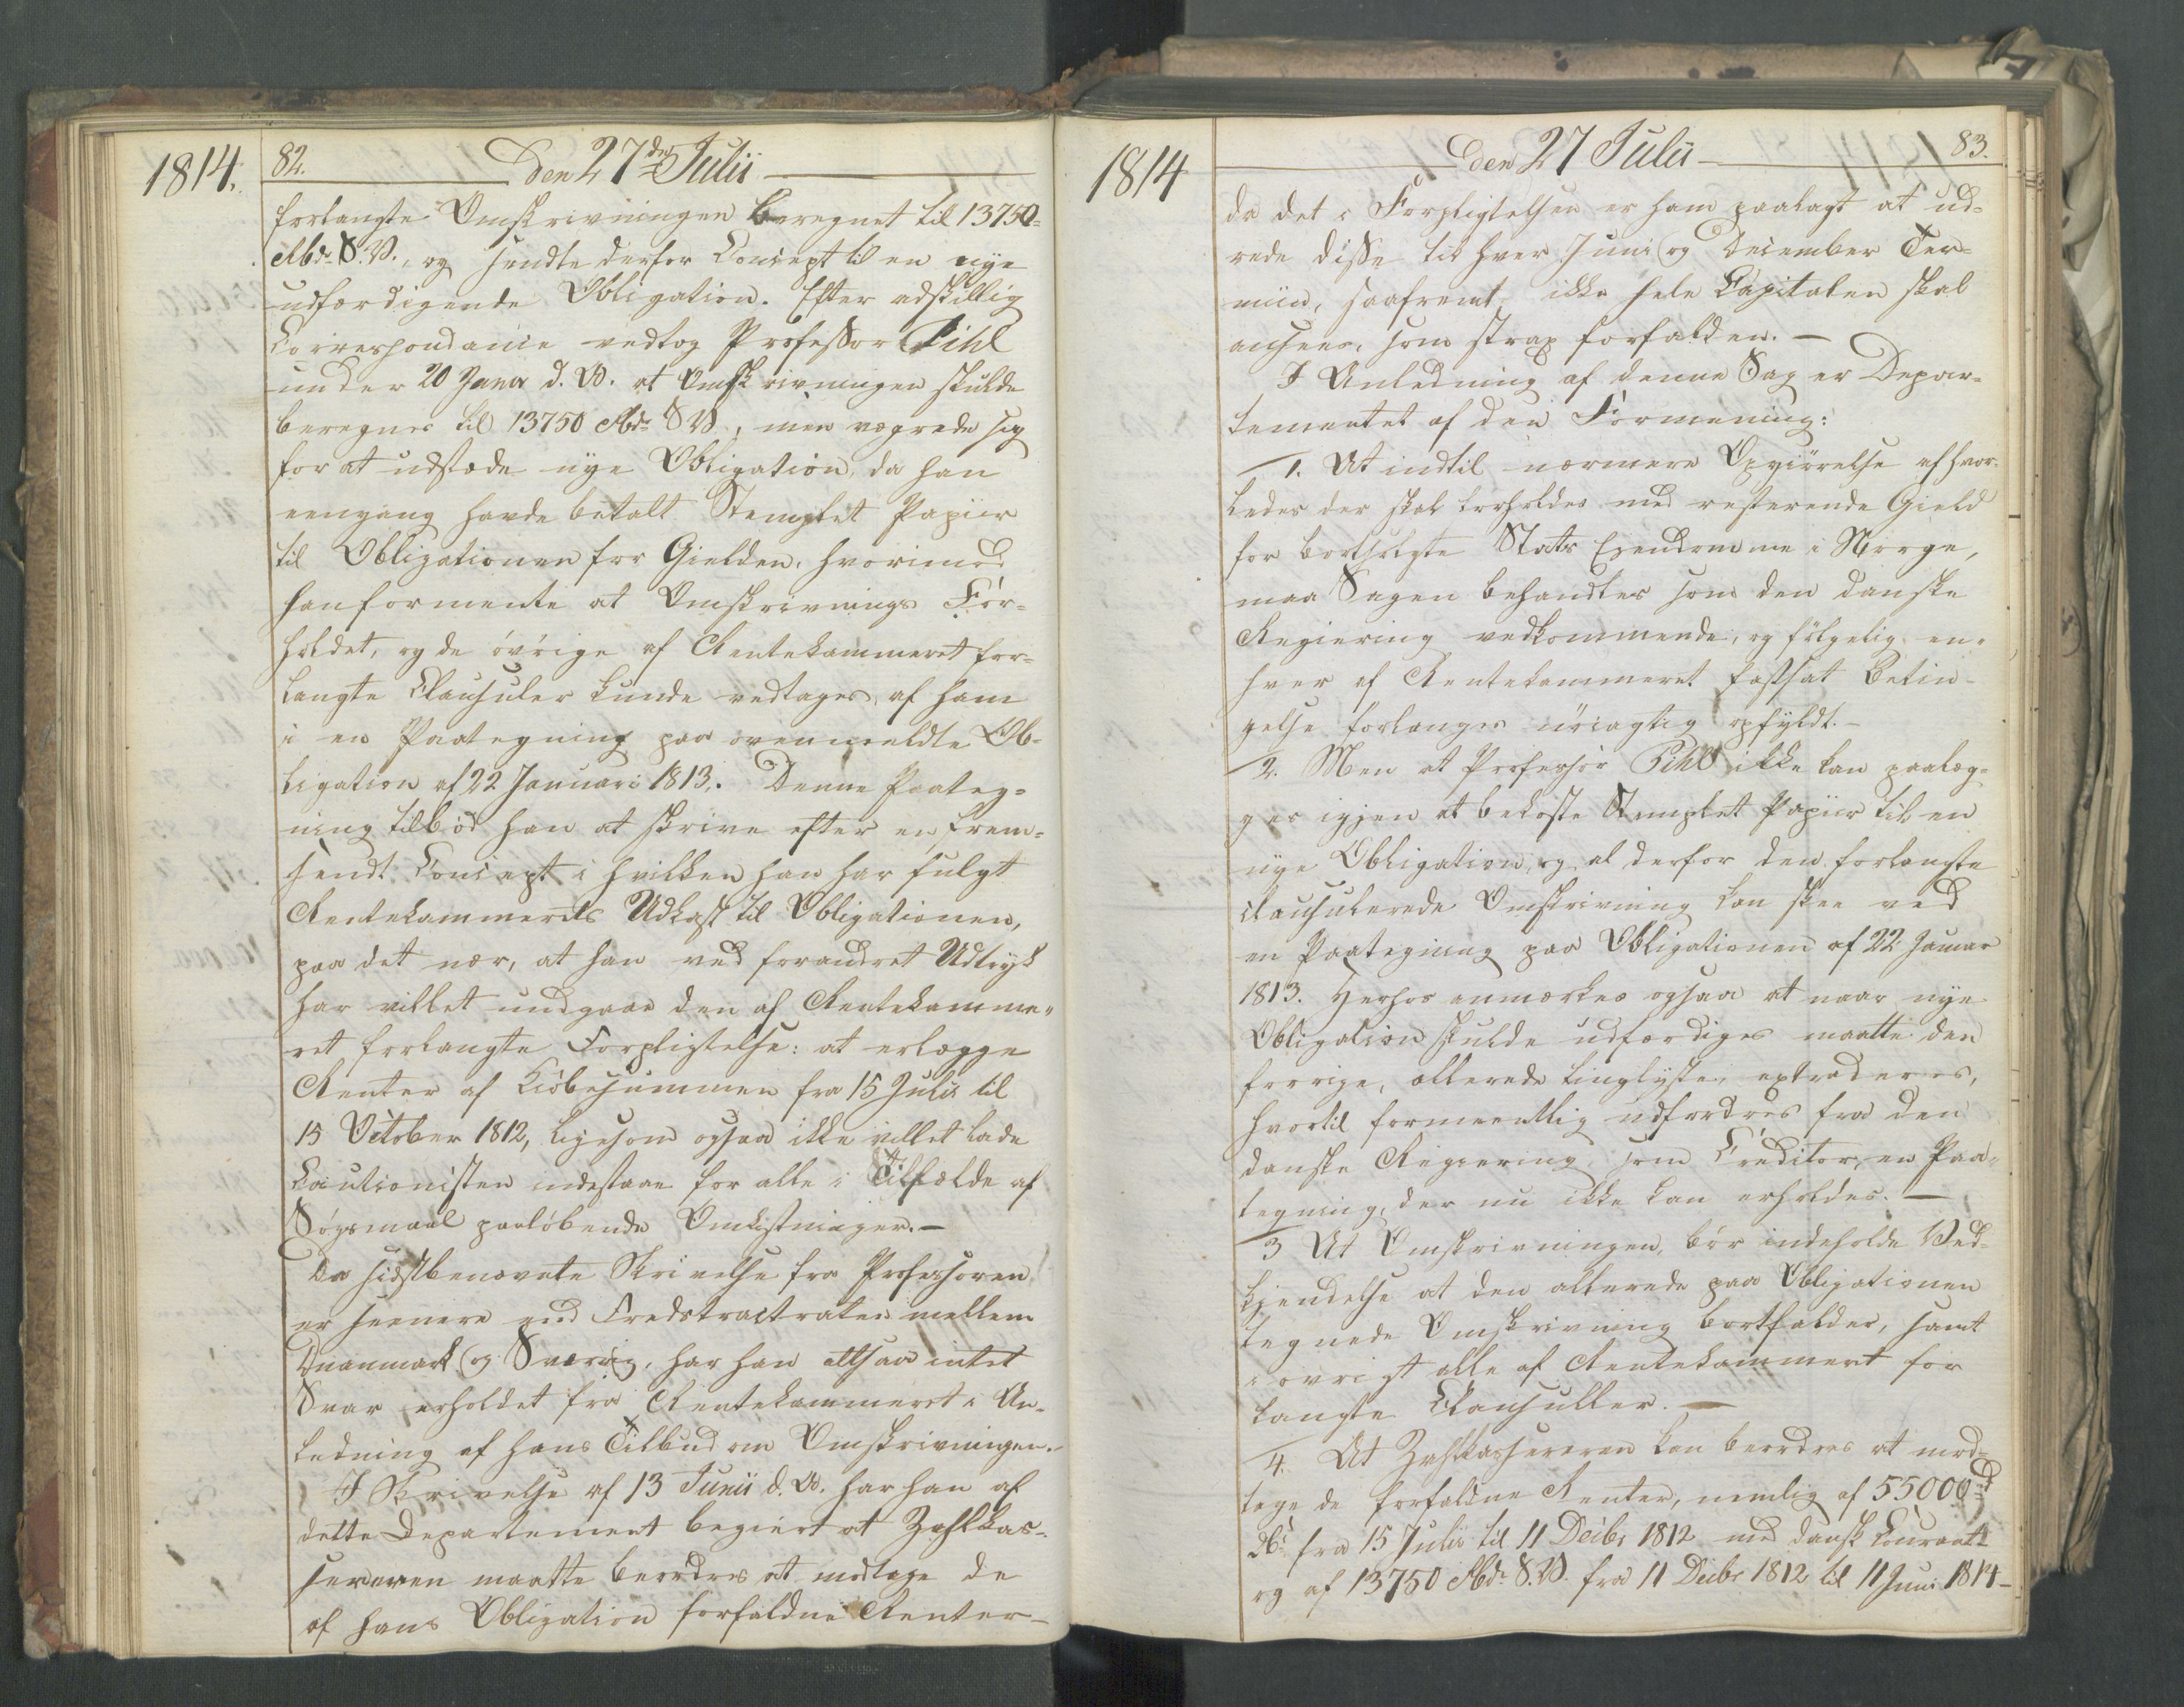 1814.
82.
Den 27de Julii
forlangte Omskrivningen beregnet til 13750
Rbd. S.V., og sendte derfor Concept til en nye
udfærdigende Obligation. Efter adskillig
Correspondance vedtog Professor Pihl
under 20 Janr d. A. at Omskrivningen skulde
beregnes til 13750 Rbd. S.V., men vægrede sig
for at udstæde nye Obligation, da han
eengang havde betalt Stemplet Papiir
til Obligationen for Gielden, hvorimod
han formente at Omskrivnings For-
holdet, og de øvrige af Rentekammeret for-
langte Clausuler kunde vedtages af ham
i en Paategning paa ovenmeldte Ob-
ligation af 22 Januari 1813. Denne Paateg-
ning tilbød han at skrive efter en frem-
sendt Concept i hvilken han har fulgt
Rentekammerets Udkast til Obligationen,
paa det nær, at han ved forandret Udtryk
har villet undgaae den af Rentekamme-
ret forlangte Forpligtelse: at erlægge
Renter af Kiøbesummen fra 15 Julii til
15 October 1812, ligesom ogsaa ikke villet lade
Cautionisten indestaae for alle i Tilfælde af
Søgsmaal paaløbende Omkostninger. —
Da sidstbenævnte Skrivelse fra Professoren
er seenere end Fredstractaten mellem
Danmark og Sverrig, har han altsaa intet
Svar erholdet fra Rentekammeret i An-
ledning af hans Tilbud om Omskrivningen.
I Skrivelse af 13 Junii d. A. har han af
dette Departement begiert at Zahlkas-
sereren maatte beordres at modtage de
af hans Obligation forfaldne Renter —
1814
Den 27 Julii
83.
da det i Forpligtelsen er ham paalagt at ud-
rede disse til hver Juni og December Ter-
miin, saafremt ikke hele Capitalen skal
ansees, som strax forfalden. —
I Anledning af denne Sag er Depar-
tementet af den Formening:
1. At indtil nærmere Afgiørelse af hvor-
ledes der skal forholdes med resterende Gield
for bortsolgte Stats Eiendomme i Norge,
maa Sagen behandles som den danske
Regiering vedkommende, og følgelig en-
hver af Rentekammeret fastsat Betin-
gelse forlanges nøiagtig opfyldt. —
2. Men at Professor Pihl ikke kan paalæg-
ges igjen at bekoste Stemplet Papiir til en
nye Obligation, og at derfor den forlangte
clausulerede Omskrivning kan skee ved
en Paategning paa Obligationen af 22 Januar
1813. Herhos anmærkes ogsaa at naar nye
Obligation skulde udfærdiges maatte den
forrige, allerede tinglyste, extraderes,
hvortil formeentlig udfordres fra den
danske Regiering som Creditor, en Paa-
tegning, der nu ikke kan erholdes. —
3 At Omskrivningen bør indeholde Ved-
kjendelse at den allerede paa Obligationen
tegnede Omskrivning bortfalder, samt
i øvrigt alle af Rentekammeret for
langte Clausuller. —
4. At Zahlkassereren kan beordres at mod-
tage de forfaldne Renter, nemlig af 55000
fra 15 Julii til 11 Decbr 1812 med dansk Courant
og af 13750 Rbd. S.V. fra 11 Decbr 1812 til 11 Juni 1814 —